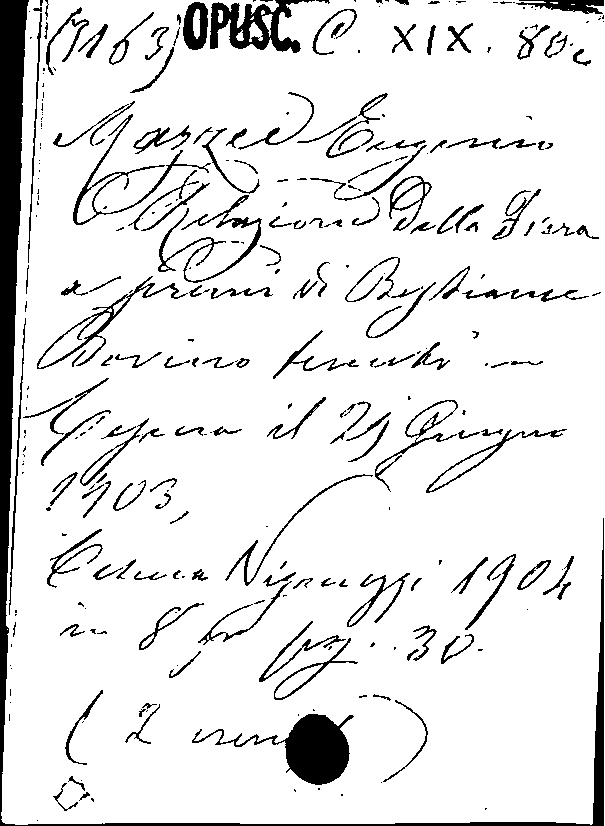 (7163) OPUSC. C. XIX. 80c
Mazzei Eugenio
Relazione della Fiera
a premi di Bestiame
Bovino tenuta in
il 21 Giugno
1903,
1904
in 8 pag. 30.
( 2 )